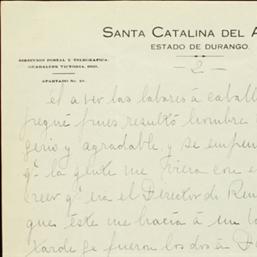 SANTA CATALINA DEL A
ESTADO DE DURANGO.
DIRECCION POSTAL Y TELEGRAFICA.
GUADALUPE VICTORIA, DGO.
APARTADO No.
-2-
el a ver las labores á caball
pues resultó hombre
gerio y agradable, y se empeñ
qe la gente me viera con e
creer qe era el Director de Ren
ques éste me hacía á un la
tarde se fueron los dos en